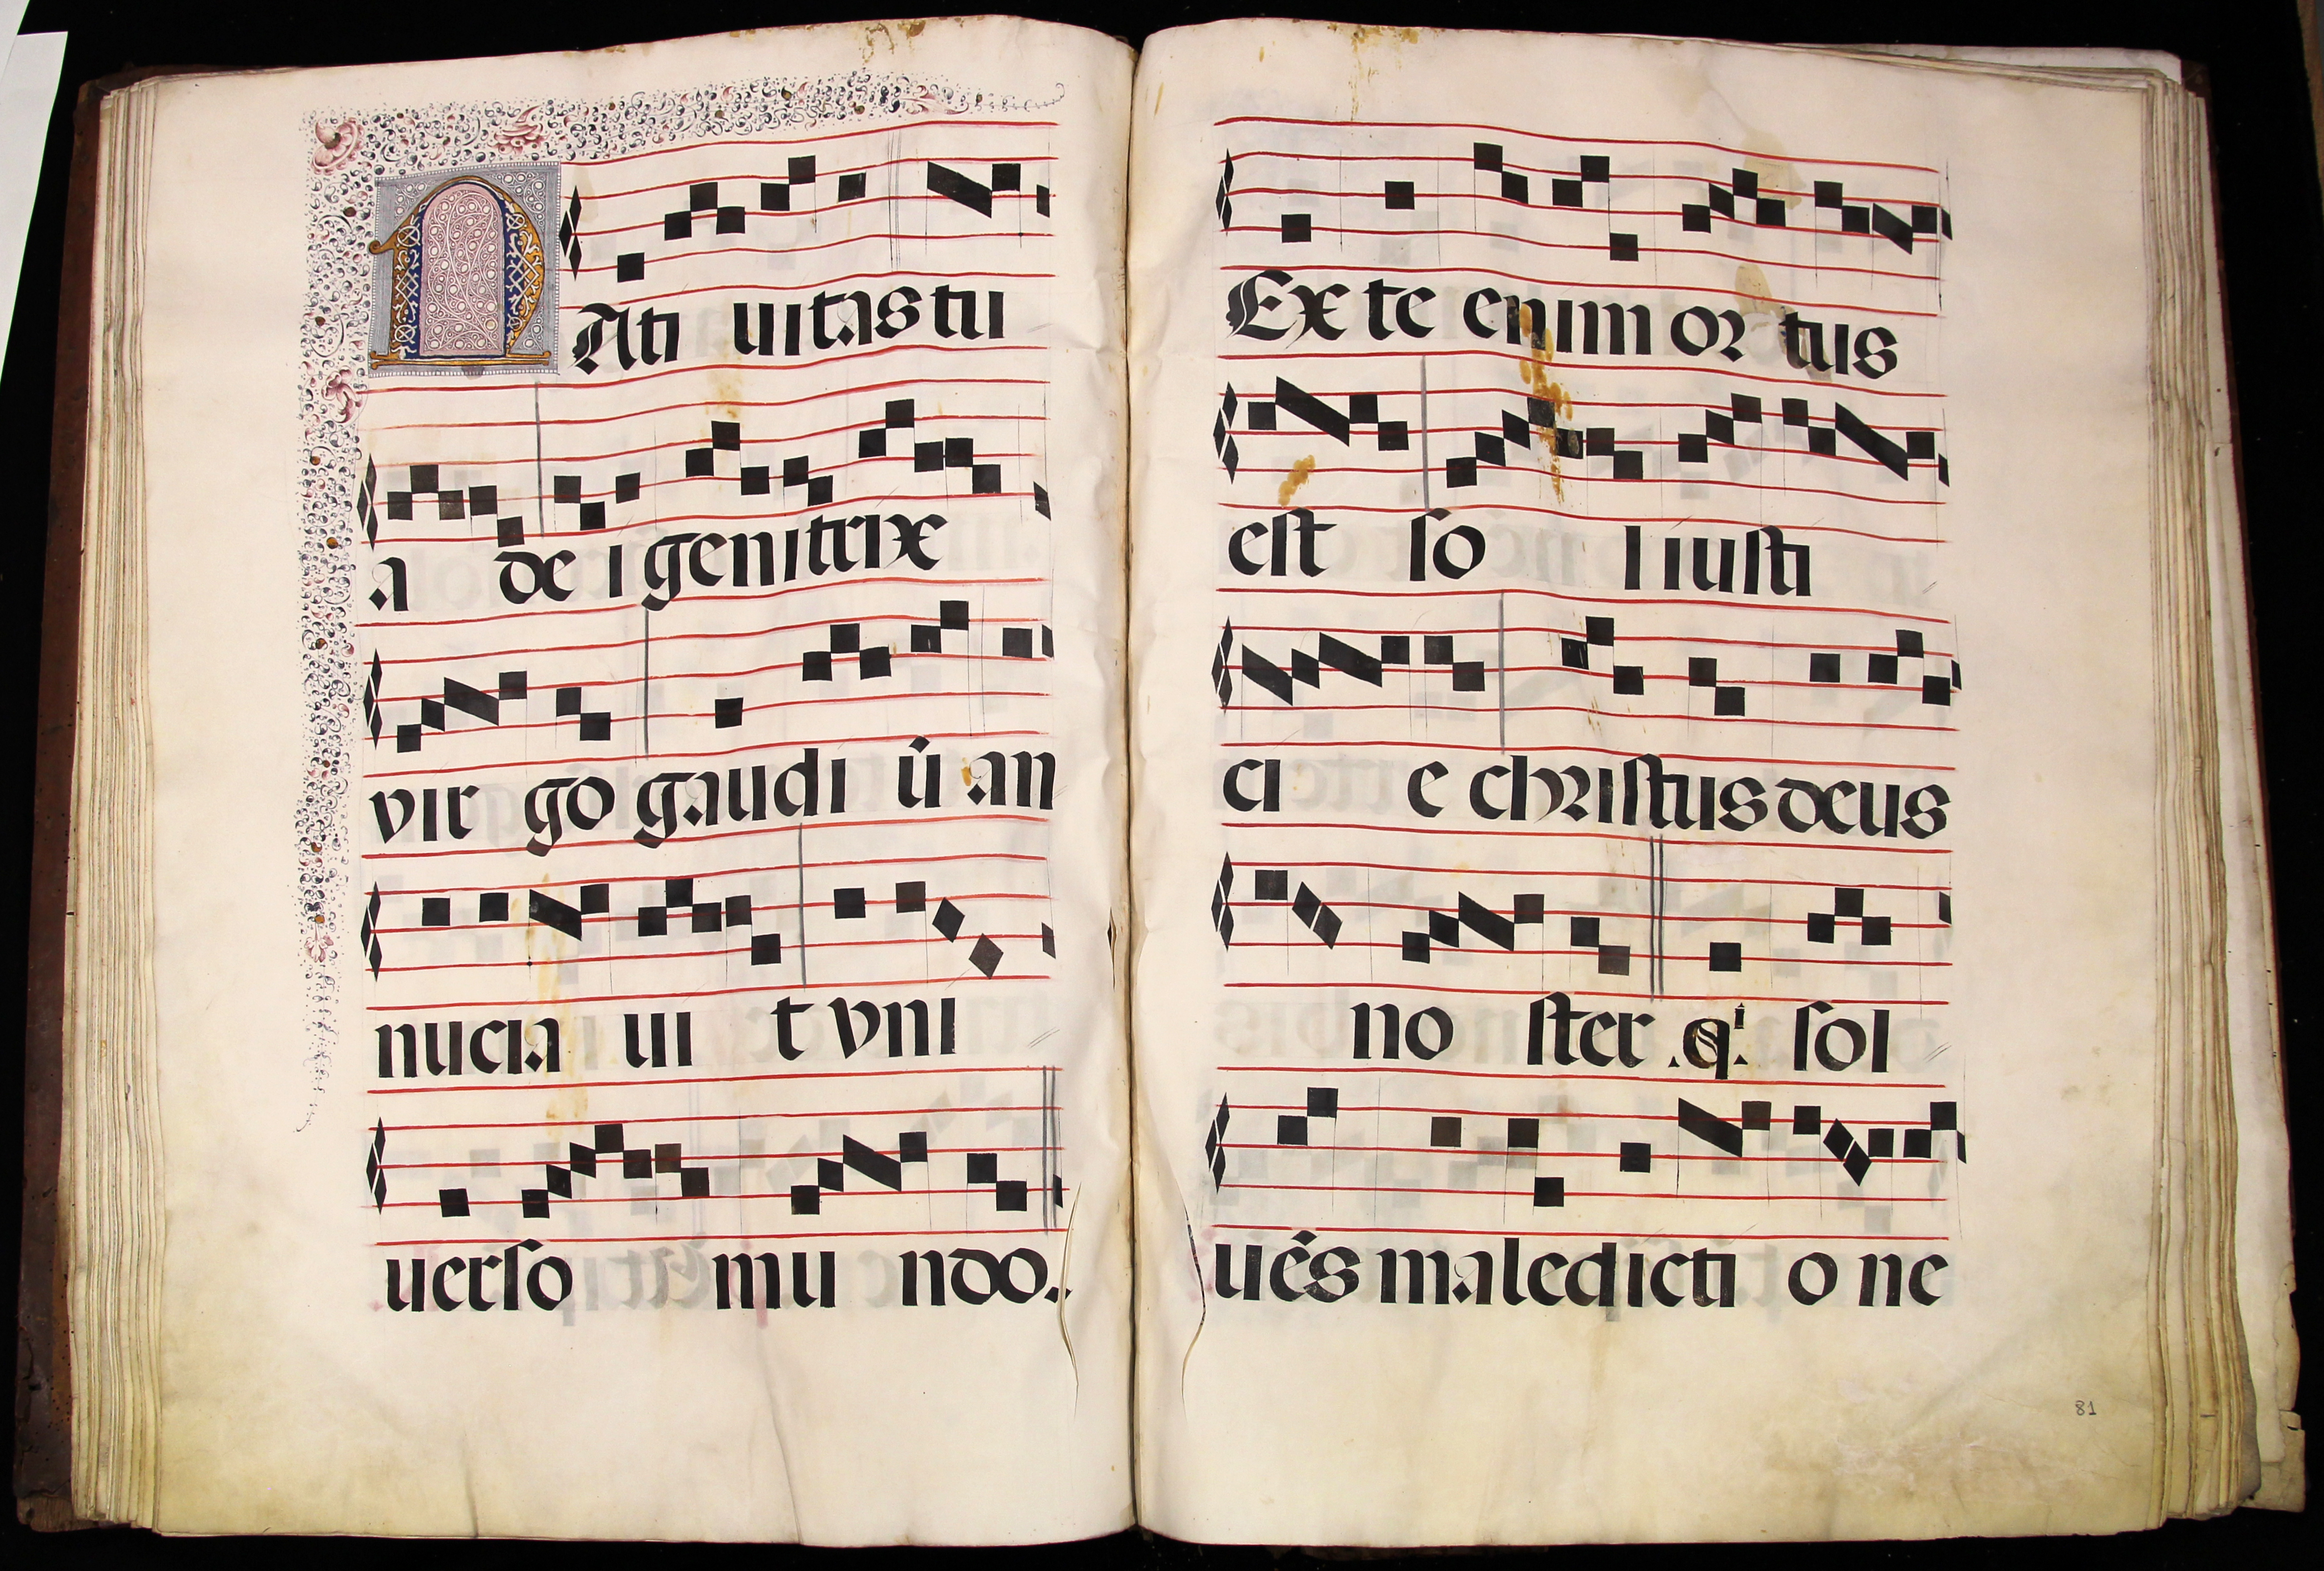 NAti uitas tu
a de i genitrix
vir go gaudi ũ an
nucia ui t vni
uerso mu ndo.
Ex te enim or tus
est so l iusti
ci e christus deus
no ster .qⁱ. sol
uẽs maledicti o ne
81